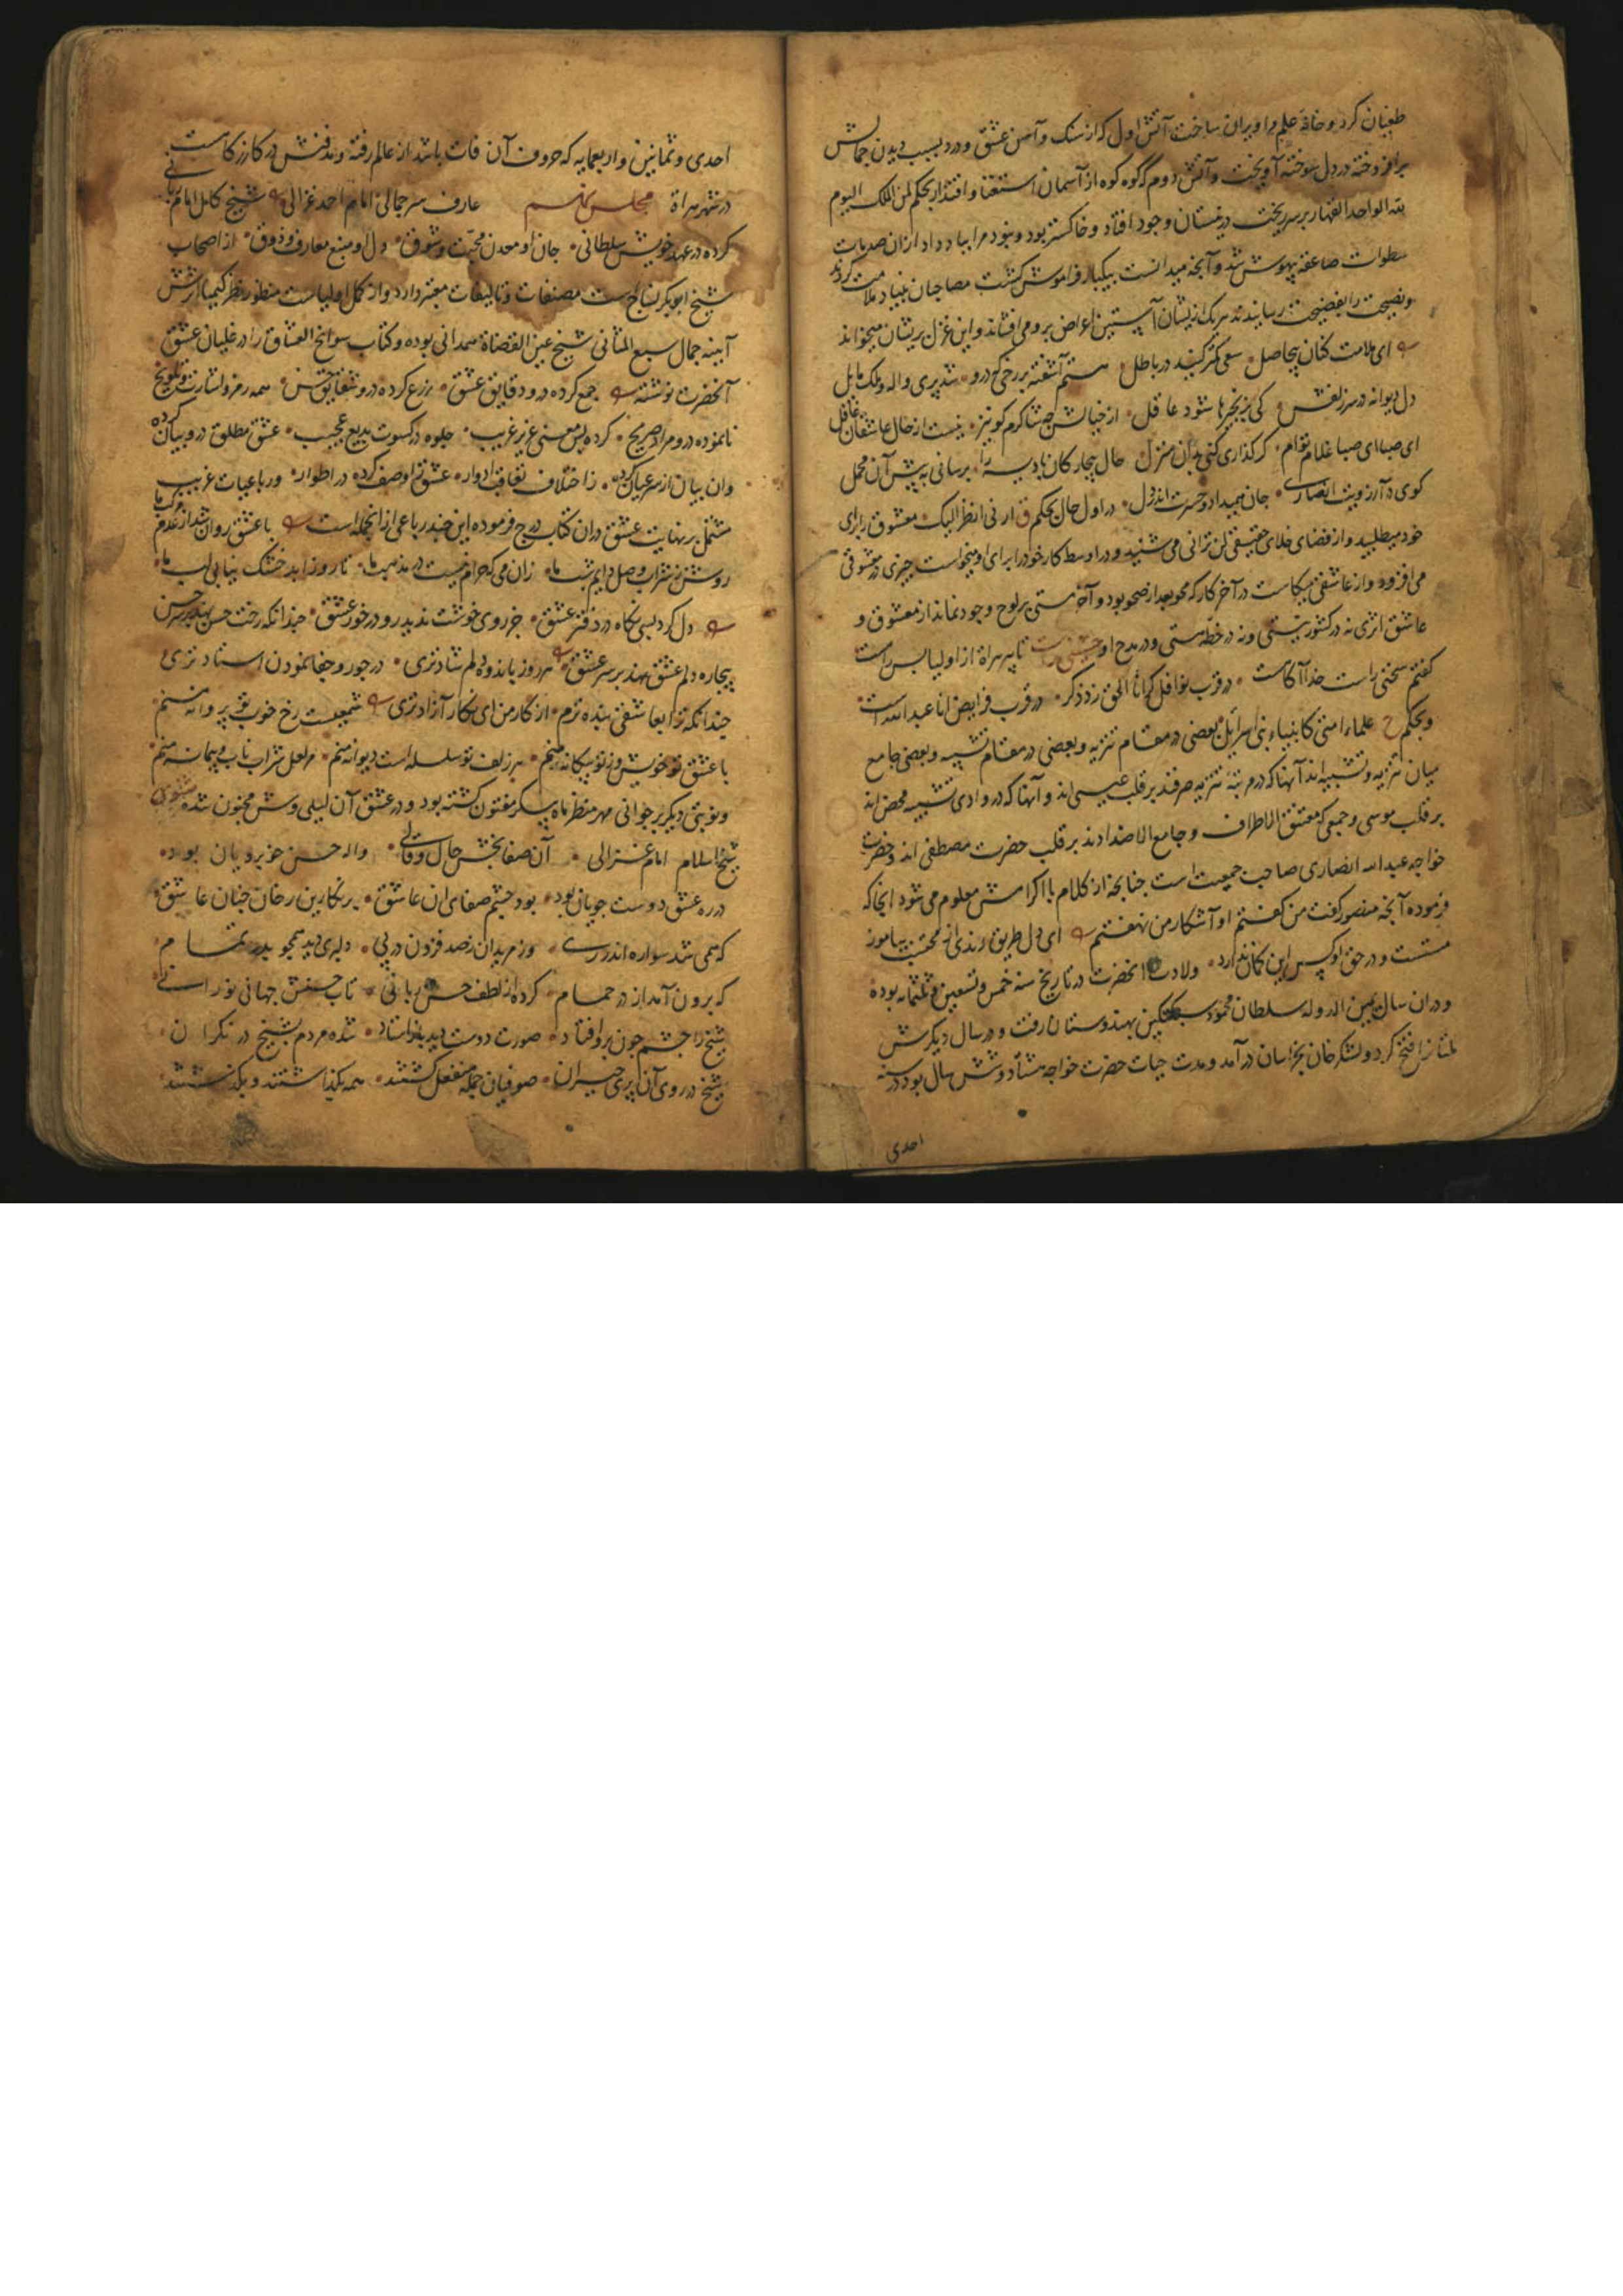 طغیان کرد و خانهٔ علم را ویران ساخت آتش اول که از سنک و آهن عشق و درد بسبب دیدن جمالش
برافروخته در دل سوخته آویخت و آتش دوم که کوه کوه از آسمان استغنا و اقتدار بحکم لمن الملک الیوم
لله الواحد القهار بر سر ریخت در نیستان وجود افتاد و خاکستر بود و نبود مرا بباد داد از ان صدمات
سطوات صاعقه بیهوش شد و آنچه میدانست بیکبار فراموش کشت مصاحبان بنیاد ملامت کردند
و نصیحت را بفضیحت رسانیدند هر یک از ایشان آستین اعراض برو می افشاند و این غزل بریشان میخواند
ای ملامت کنان بیحاصل سعی کمتر کنید در باطل هستم آشفته بر رخی که درو شد پری واله و ملک مایل
دل دیوانه در سر زلفش کی بزنجیرها شود عاقل از خیالش صبا کرم کو نیز نیست از حال عاشقان غافل
ای صبا ای صبا غلام توام کر کذاری کنی بدان منزل حال بیچارکان بادیه را برسانی به پیش آن محمل
کوی در آرزویت انصاری جان همیداد و حسرت اندر دل در اول حال بحکم ق ارنی انظر الیک معشوق را برای
خود میطلبید و از فضای خلای حقیقی لن ترانی می شنید و در اوسط کار خود را برای او میخواست چیزی در معشوقی
می افزود و از عاشقی میکاست در آخر کار که محو بعد از صحو بود و آخر مستی بر لوح وجود نماند از معشوق و
عاشق اثری نه در کشور نیستی و نه در خطهٔ هستی و در مدح او تا پیر هراة از اولیا بس راست
کفتم سخنی راست خدا آکاست در قرب نوافل که انا الحق زد ذکر در قرب فرایض انا عبد الله است
و بحکم ح علماء امتی کانبیاء بنی اسرائیل بعضی در مقام تنزیه و بعضی در مقام تشبیه و بعضی جامع
میان تنزیه و تشبیه اند آنها که در مرتبهٔ تنزیه صرفند بر قلب عیسی اند و آنها که در وادی تشبیه محض اند
بر قلب موسی و جمعی که معتنق الاطراف و جامع الاضدادند بر قلب حضرت مصطفی اند و حضرت
خواجه عبد الله انصاری صاحب جمعیت است چنانچه از کلام با اکرامش معلوم می شود اینجا که
فرموده آنچه منصور کفت من کفتم او آشکار من نهفتم ای دل طریق رندی از محتسب بیاموز
مستست و در حق او کس این کمان ندارد ولادت آنحضرت در تاریخ سنه خمس و تسعین و ثلثمائه بوده
و دران سال یمین الدوله سلطان محمود سبکتکین بهندوستان رفت و در سال دیکرش
ملتان را فتح کرد و لشکر خان بخراسان در آمد و مدت حیات حضرت خواجه هشتاد و شش سال بود در سنه
احدی
احدی و ثمانین و اربعمایه که حروف آن فات باشد از عالم رفته و مدفنش در کازرکاست
در شهر هراة مجلس عارف سر جمالی امام احمد غزالی شیخ کامل امام ربانی
کرده در عهد خویش سلطانی جان او معدن محبت و شوق دل او منبع معارف و ذوق از اصحاب
شیخ ابوبکر نساج است مصنفات و تالیفات معتبر دارد و از کمل اولیاست منظور نظر کیمیا اثرش
آیینه جمال سبع المثانی شیخ عین القضاة همدانی بوده و کتاب سوانح العشاق را در غلیان عشق
آنحضرت نوشته جمع کرده درو دقایق عشق درج کرده درو شقایق همه رمز و اشارت و تلویح
نانموده درو مراد صریح کرده بس معنی عزیز غریب جلوه در کسوت بدیع عجیب عشق مطلق درو بیان کرده
وان بیان از سر عیان کرده ز اختلاف تعاقب ادوار عشق را وصف کرده در اطوار و رباعیات غریب
مشتمل بر نهایت عشق دران کتاب درج فرموده این چند رباعی از آنجمله است با عشق روان شد از عدم مرکب ما
روشن ز شراب وصل دایم شب ما زان می که حرام نیست در مذهب ما تا روز ابد خشک نیابی لب ما
دل کرد بسی نکاه در دفتر عشق جز روی خوشت ندید رو در خور عشق چندانکه رخت حسن نهد بر سر حسن
بیچاره دلم عشق نهد بر سر عشق هر روز باندوه دلم شادتری در جور و جفا نمودن استادتری
چندانکه ترا بعاشقی بنده ترم از کار من ای نکار آزادتری شمعیست رخ خوب تو پروانه منم
با عشق تو خویش و ز تو بیکانه منم بر زلف تو سلسله است دیوانه منم بر لعل شراب ناب و پیمانه منم
و نوبتی دیکر بر جوانی مهر منظر ماه پیکر مفتون کشته بود و در عشق آن لیلی وش مجنون شده مثنوی
شیخ اسلام امام غزالی آن صفابخش حال و قالی واله حسن خوبرویان بود
در ره عشق دوست جویان بود بود چشم صفای ان عاشق بر نکارین رخان چنان عاشق
که همی شد سواره اندر ری وز مریدان ز صد فزون در پی دلبری دید همچو بدر تمام
که برون آمد از در حمام کرده از لطف حسن ربانی تاب حسنش جهانی نورانی
شیخ را چشم چون برو افتاد صورت دوست دید باز استاد شده مردم بشیخ در نکران
شیخ در روی آن پری حیران صوفیان جمله منفعل کشتند همه بکذاشتند و بکذشتند